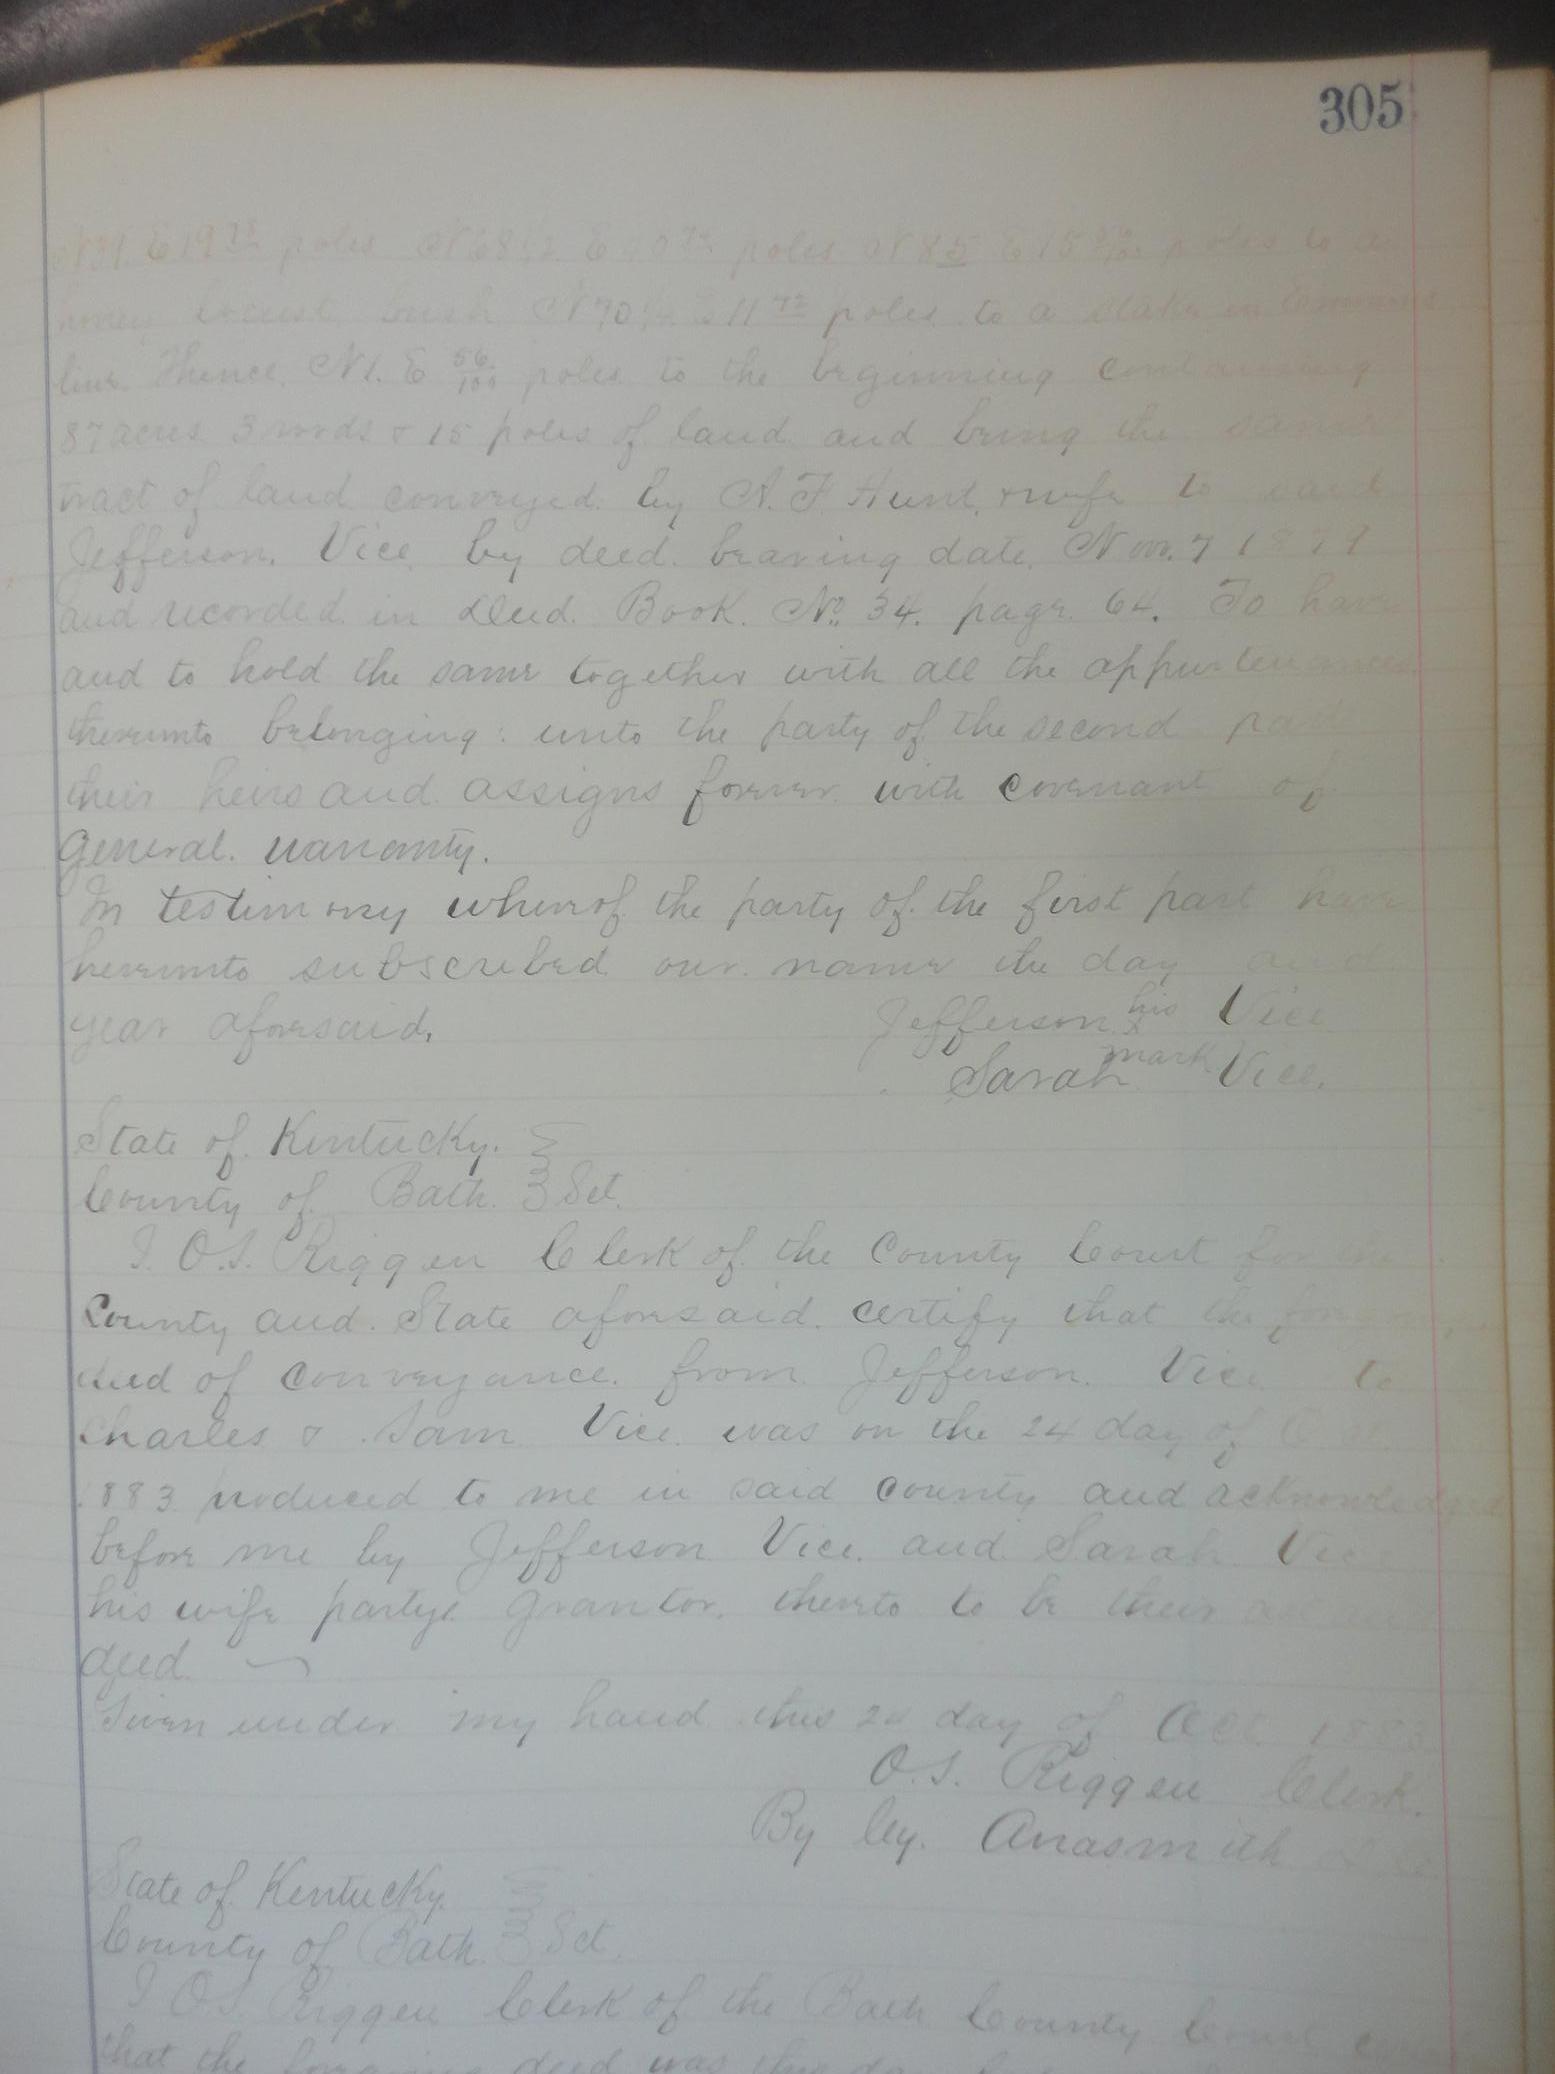 305
poles N 68 1/2 E poles N 85 E 15 poles to a
honey locust bush N 70 11 72 poles to a stake in
line. Thence. N 1. E 56/100 poles to the beginning containing
87 acres 3 roods & 15 poles of land and being the same
tract of land conveyed by A. F. Hunt & wife to said
Jefferson. Vice by deed. bearing date. Nov. 7 1879
and recorded in Deed. Book. No. 34. page. 64. To have
and to hold the same together with all the appurtenances
thereunto belonging: unto the party of the second part
their heirs and assigns forever with covenant of
General. warranty.
In testimony whereof the party of the first part have
hereunto subscribed our name the day and
year aforesaid.
Jefferson his x mark Vice
Sarah Vice.
State of Kentucky.
County of Bath. Sct.
I. O.S. Riggen Clerk of the County Court for the
County and State aforesaid. certify that the foregoing
deed of conveyance from Jefferson. Vice to
Charles & Sam Vice was on the 24 day of Oct.
1883 produced to me in said county and acknowledged
before me by Jefferson Vice. and Sarah Vice
his wife partys grantor. thereto to be their act and
deed
Given under my hand this 24 day of Oct. 1883
O.S. Riggen Clerk.
By
State of Kentucky.
County of Bath. Sct.
I O.S. Riggen Clerk of the Bath County Court
that the foregoing deed was this day